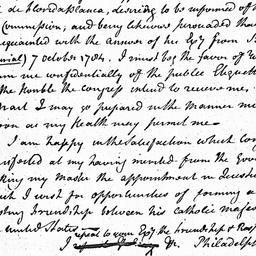 de Florida Blanca, desiring to be informed of th
Commission, and being likewise persuaded tha
acquainted with the answer of his Exy from
7 October 1784. I must beg the favor of
me confidentially of the public Etiquette
the Honble the Congress intend to receive me.
I may go prepared in the manner
soon as my Health may permit me
I am happy in the satisfaction which Cong
at my having merited from the
King my Master the appointment
I wish for opportunities of forming a
Friendship between his Catholic Majes
United States
repeat to your Exy the friendship & Resp
I &c. Philadelph